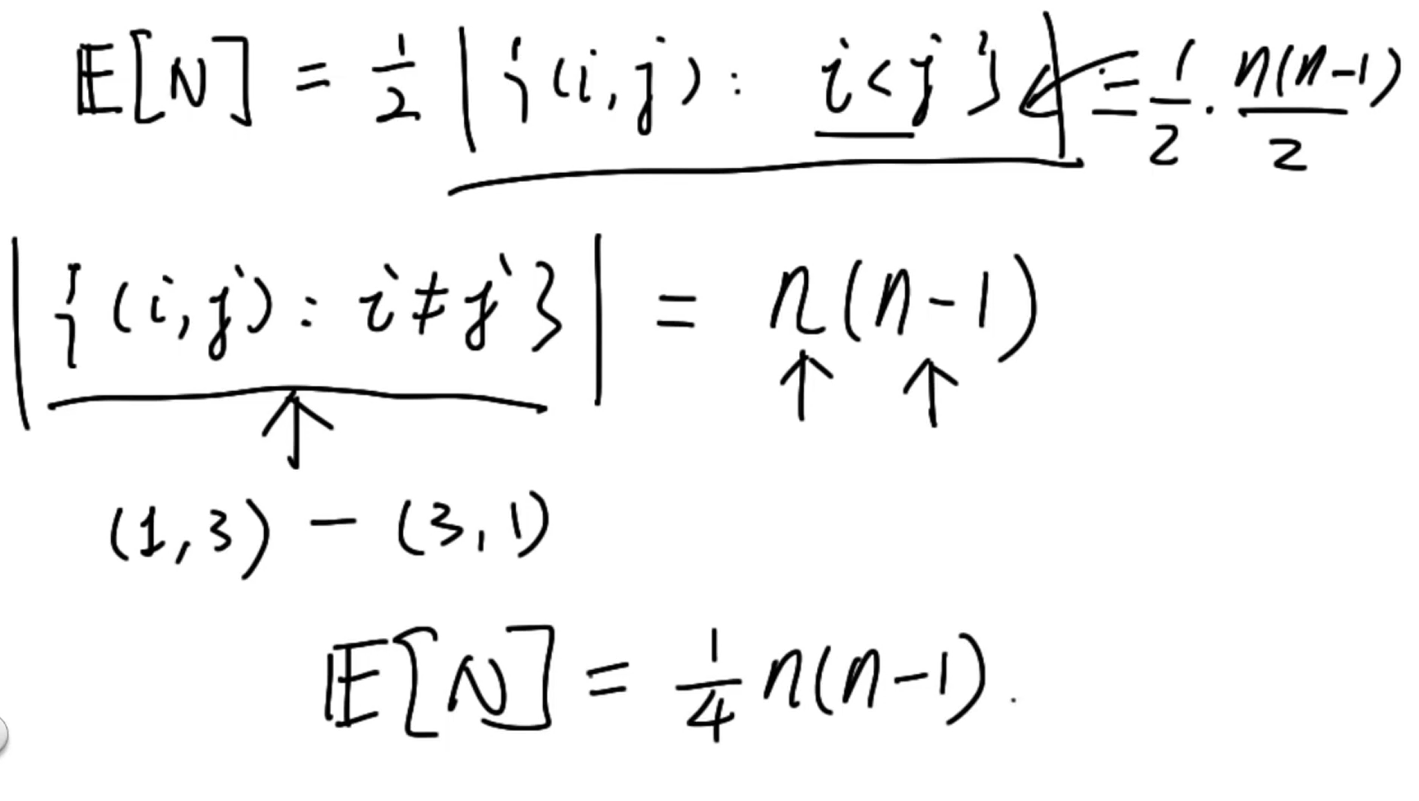 𝔼[N] = 1/2 |{(i,j): i<j}| = 1/2 · n(n-1)/2
|{(i,j): i≠j}| = n(n-1)
↑ ↑ ↑
(1,3) - (3,1)
𝔼[N] = 1/4 n(n-1).